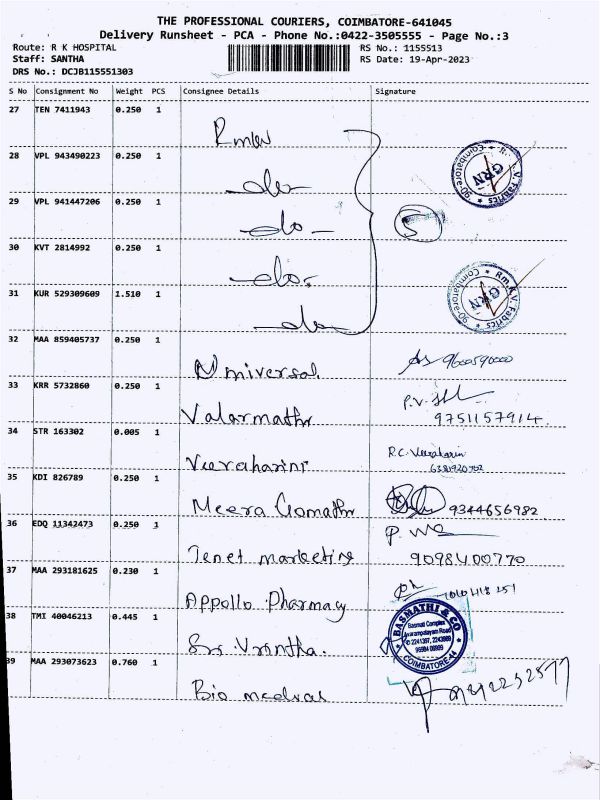 THE PROFESSIONAL COURIERS, COIMBATORE-641045
Delivery Runsheet - PCA - Phone No.:0422-3505555 - Page No.:3
Route: R K HOSPITAL RS No.: 1155513
Staff: SANTHA RS Date: 19-Apr-2023
DRS No.: DCJB115551303
S No Consignment No Weight PCS Consignee Details Signature
27 TEN 7411943 0.250 1
Rmkv
28 VPL 943490223 0.250 1
R.M.K.V. Fabrics * Coimbatore-90 * GRN
-do-
29 VPL 941447206 0.250 1
-do- 5
30 KVT 2814992 0.250 1
-do-
31 KUR 529309609 1.510 1
Rm.K.V. Fabrics * Coimbatore-90 * GRN
-do-
32 MAA 859405737 0.250 1
Universal 9600590000
33 KRR 5732860 0.250 1
P.V.
Valarmathi 9751157914
34 STR 163302 0.005 1
R.C. Veeraharini
Veeraharini
35 KDI 826789 0.250 1
Meera Gomathi 9344656982
36 EDQ 11342473 0.250 1
P.
Tenet marketing 9098400770
37 MAA 293181625 0.230 1
Appollo Pharmacy
38 TMI 40046213 0.445 1
BASMATHI & CO
Basmati Complex
COIMBATORE-44
Sri Vrintha.
39 MAA 293073623 0.760 1
Bio medicas